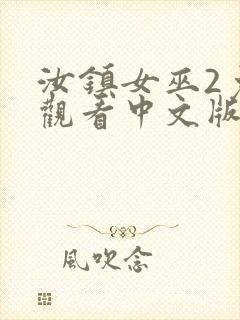 汝鎮女巫2
觀看中文版
風吹念